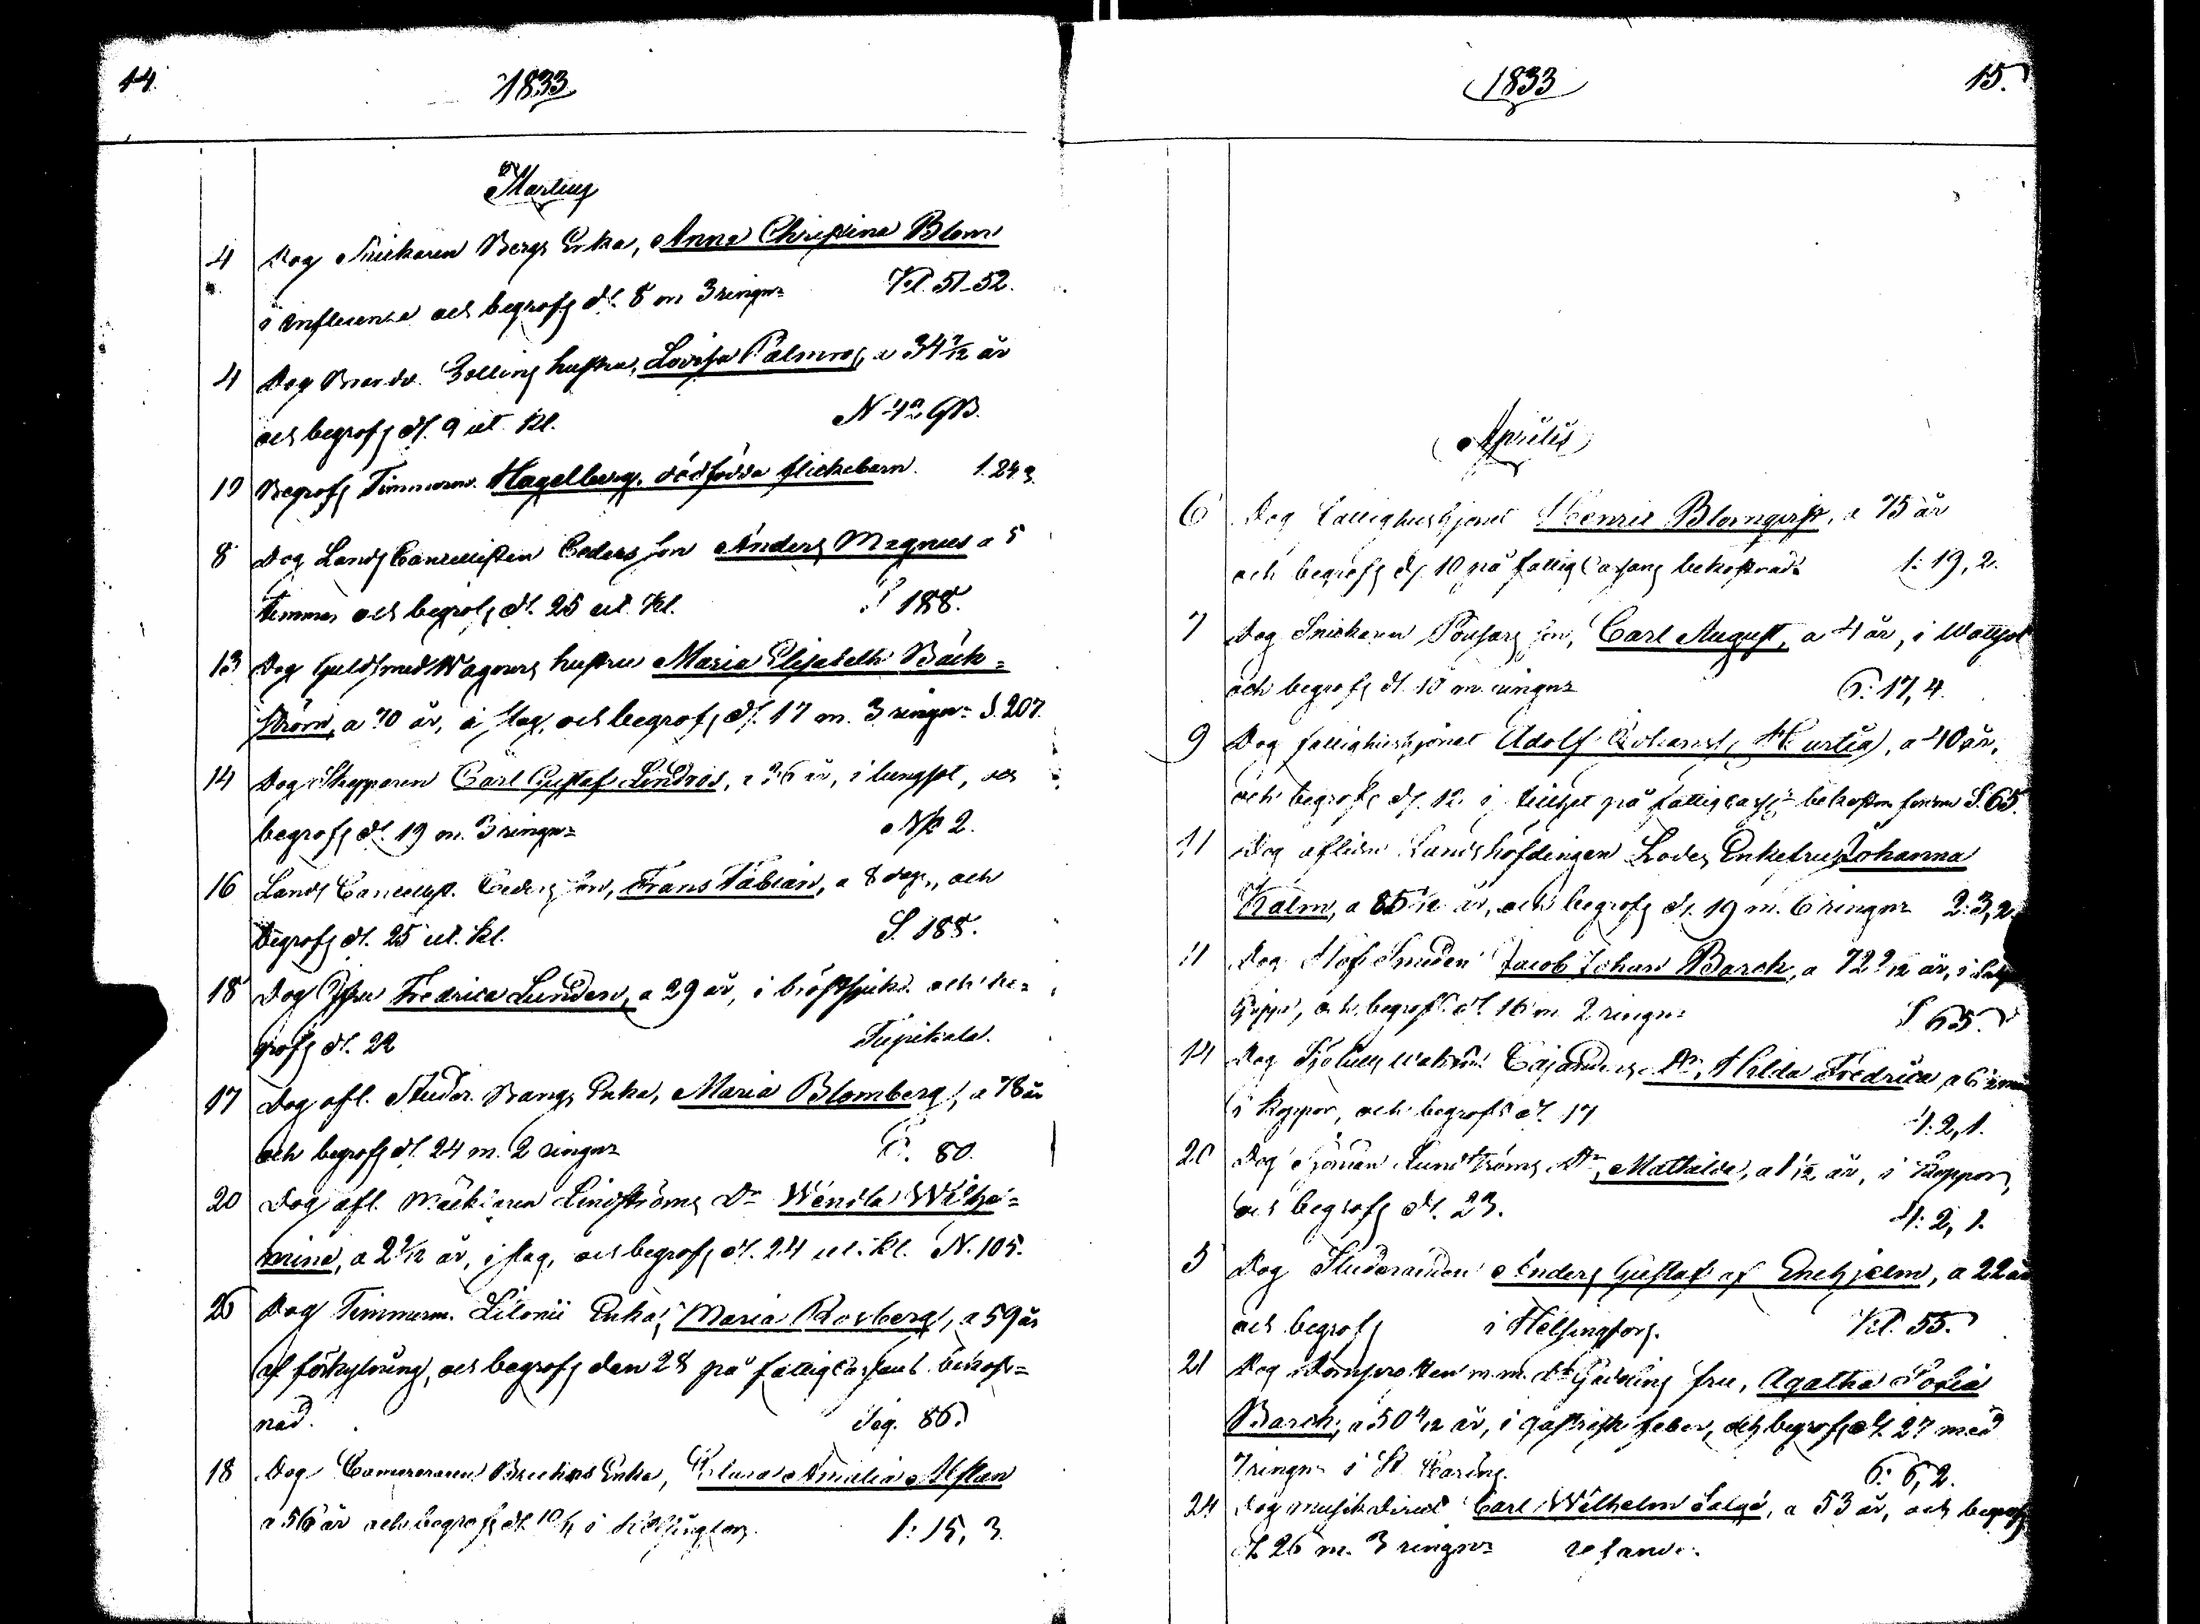 14.
1833
Martius
4 Dog Snickaren Bergs Enka, Anna Christina Blom
i influenza och begrofs d. 8 m 3 ringnr Kl. 51-52.
4 Dog Brandv. Bollins hustru, Lovisa Palmros, a 34 7/12 år
och begrofs d. 9 ut. Kl. N 42 GB.
19 Begrofs Timmerm. Hagelbergs dödfödda flickebarn. 1.24.3.
8 Dog Lands Cancellisten Ceders son Anders Magnus a 5
timmar och begrofs d. 25 ut. Kl. S 188.
13 Dog Guldsmed Wagners hustru Maria Elisabeth Bäck=
ström, a 70 år, i slag, och begrofs d. 17 m. 3 ringnr S. 207.
14 Dog Skepparen Carl Gustaf Lindros, a 36 år, i lungsot, och
begrofs d. 19 m. 3 ringnr 2.
16 Lands Cancellist. Ceders son, Frans Fabian, a 8 dagr, och
begrofs d. 25 ut. Kl. S. 188.
18 Dog Jgfru Fredrica Lunden, a 29 år, i bröstsjukd. och be=
grofs d. 22
17 Dog afl. Studer. Bangs Enka, Maria Blomberg, a 78 år
och begrofs d. 24 m. 2 ringnr 80.
20 Dog afl. Mäklaren Lindströms Dr Wendla Wilhel=
mina, a 2 2/12 år, i slag, och begrofs d. 24 ut. Kl. N. 105.
25 Dog Timmerm. Litonii Enka, Maria Rosberg, a 59 år
af förkylning, och begrofs den 28 på fattigcassans bekost=
nad. 86
18 Dog Camereraren Enka, Klara Amalia Alftan
a 56 år och begrofs d. 10/4 i Helsingfors. 1: 15, 3.
1833
15.
Aprilis
6 Dog fattighushjonet Henric Blomqvist, a 75 år
och begrofs d. 10 på fattigcassans bekostnad. 1: 19, 2.
7 Dog Snickaren son, Carl August, a 4 år, i Wattsot
och begrofs d. 10 m. ringnr 6: 17, 4.
9 Dog fattighushjonet Adolf Hurtig, a 40 år,
och begrofs d. 12 i på fattigcass. S. 65.
11 Dog afliden Landshöfdingen Lodes Enkefru Johanna
Kalm, a 85 /12 år, och begrofs d. 19 m. 6 ringnr 2: 3, 2.
11 Dog Jacob Johan Barck, a 72 9/12 år, i
och begrofs d. 16 m 2 ringnr S 65.
14 Dog Cajanders Dr, Hilda Fredrica a 6
i Koppor, och begrofs d. 17 4: 2, 1.
20 Dog Sjöman Lundströms Dr, Mathilda, a 1 /12 år, i Koppor
och begrofs d. 23. 4: 2, 1.
5 Dog Studeranden Anders Gustaf af Enehjelm, a 22 år
och begrofs i Helsingfors. Kl. 55.
21 Dog Domprosten m.m. Dr Gadolins fru, Agatha Sofia
Barck, a 50 4/12 år, i gastrisk feber, och begrofs d. 27 med
7 ringnr i St. Karins. 6: 6, 2.
24 Dog musik direct Carl Wilhelm Salgé, a 53 år, och begrofs
d. 26 m. 3 ringnr